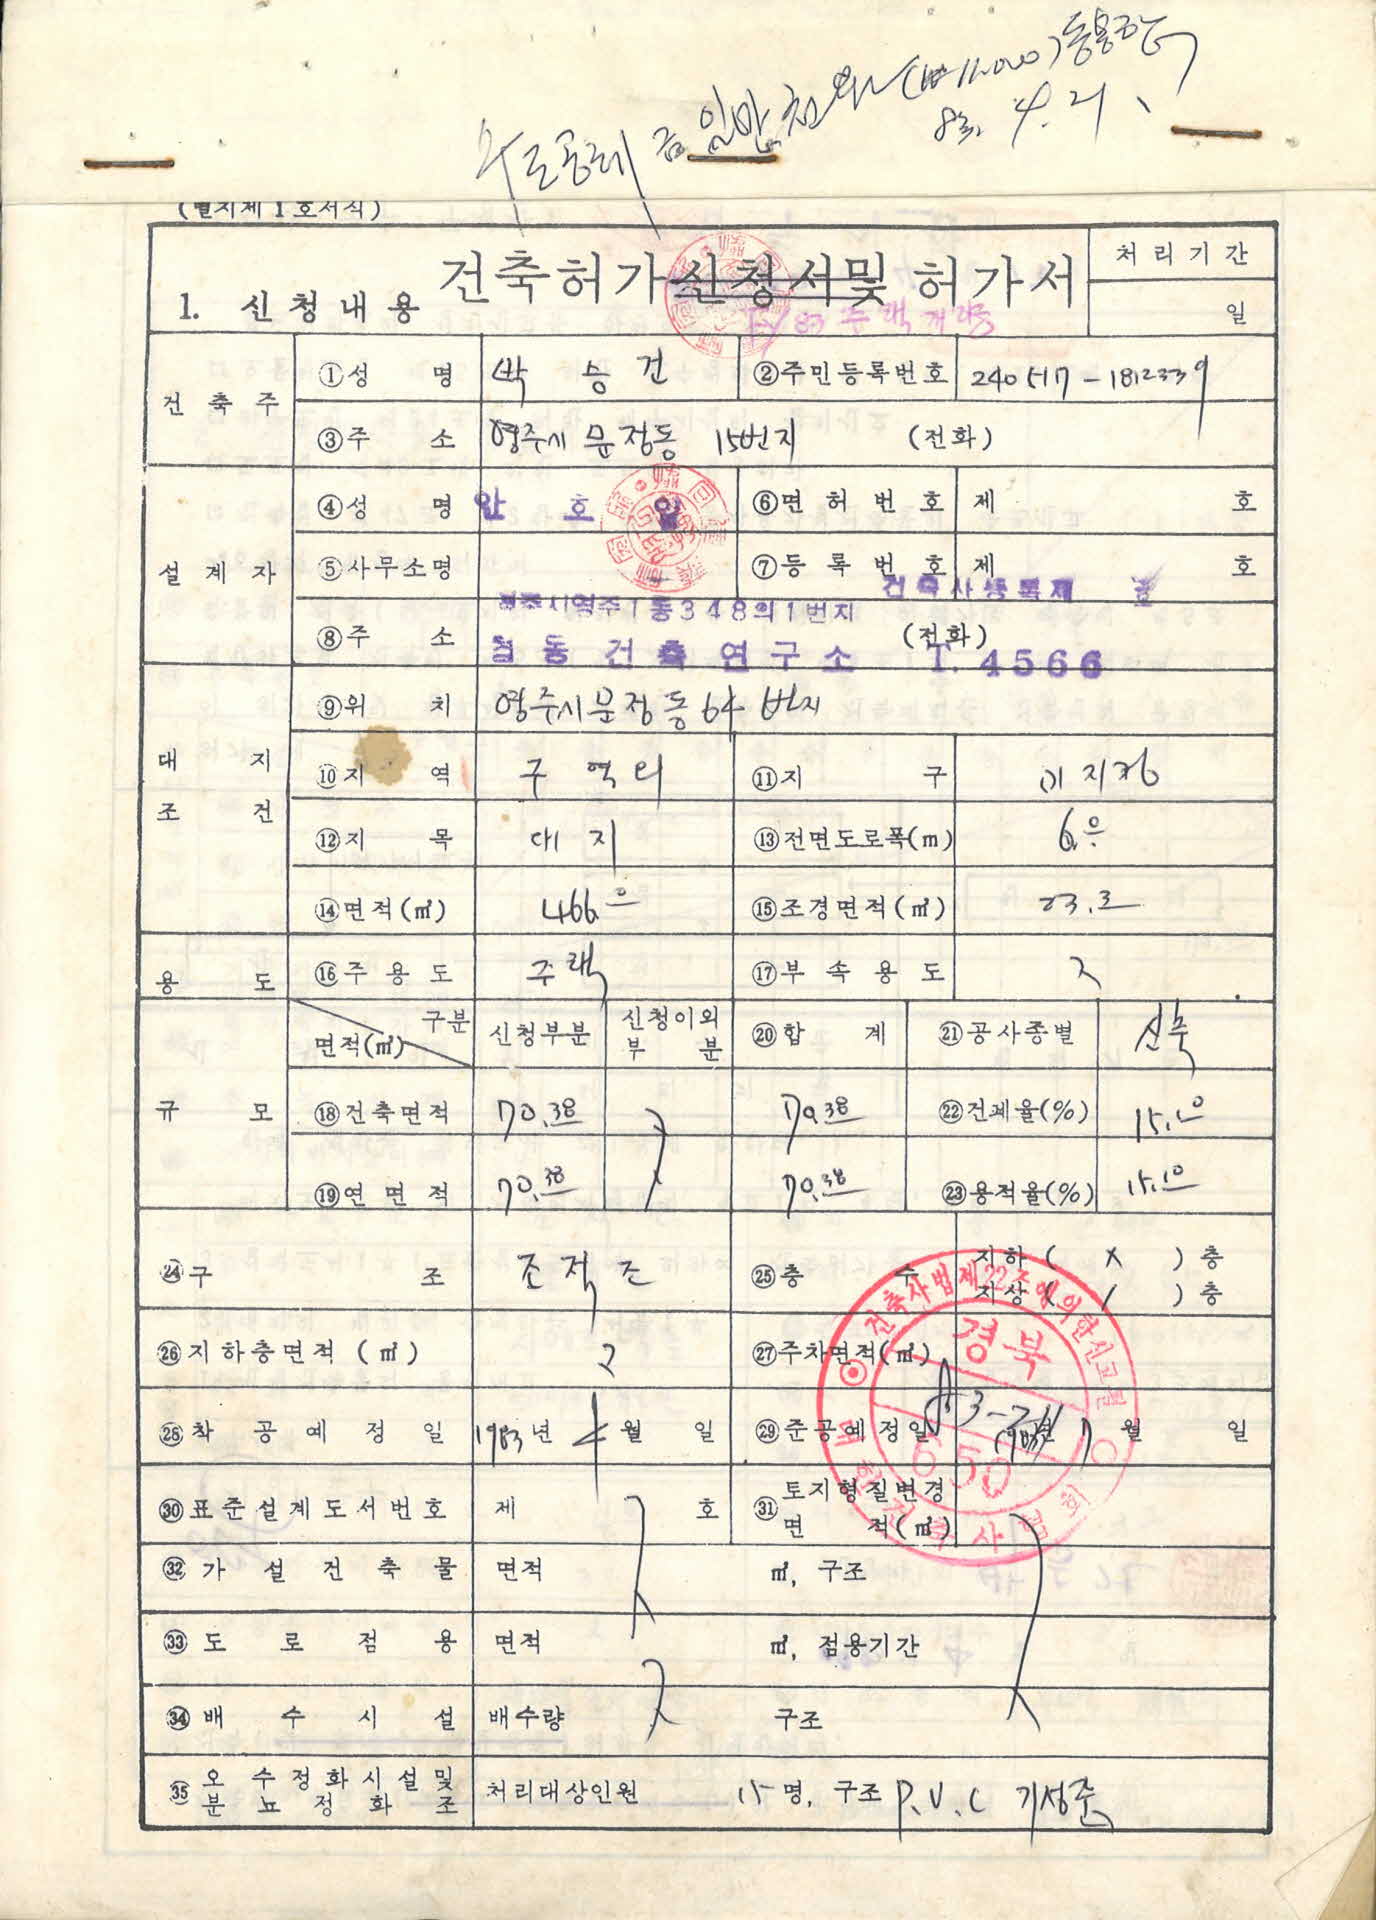 금 일만천원 (₩11,000)
83. 4. 21.
(별지제 1 호서식)
건축허가신청서및 허가서
처리기간
1. 신청내용
일
83 주택개량
건축주
①성 명 朴 승 건 ②주민등록번호 240517-1812339
③주 소 영주시 문정동 15번지 (전화)
설계자
④성 명 안 호 일 ⑥면허번호 제 호
⑤사무소명 ⑦등록번호 제 호
건축사등록제 호
영주시영주1동348의1번지
⑧주 소 (전화)
동 건축연구소 T. 4566
대지조건
⑨위 치 영주시 문정동 64 번지
⑩지 역 구역외 ⑪지 구 미지정
⑫지 목 대지 ⑬전면도로폭(m) 6.0
⑭면적(㎡) 466.0 ⑮조경면적(㎡) 23.3
용도
⑯주용도 주택 ⑰부속용도
규모
구분
면적(㎡) 신청부분 신청이외부분 ⑳합계 ㉑공사종별 신축
⑱건축면적 70.38 70.38 ㉒건폐율(%) 15.10
⑲연면적 70.38 70.38 ㉓용적율(%) 15.10
㉔구 조 조적조 ㉕층 수 지하 ( X ) 층
지상 ( 1 ) 층
㉖지하층면적 (㎡) ㉗주차면적(㎡)
건축사법제22조에의한신고필
경북
83-3-
650
대한건축사협회
㉘착공예정일 1983년 4월 일 ㉙준공예정일 1983년 7월 일
㉚표준설계도서번호 제 호 ㉛토지형질변경
면 적(㎡)
㉜가설건축물 면적 ㎡, 구조
㉝도로점용 면적 ㎡, 점용기간
㉞배수시설 배수량 구조
㉟오수정화시설및
분뇨정화조 처리대상인원 15명, 구조 P.V.C 기성품